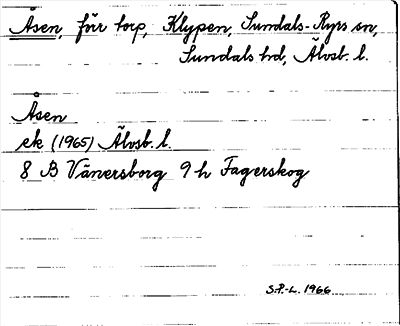 Åsen, förr torp, Klypen, Sundals-Ryrs sn,
Sundals hd, Älvsb. l.
Åsen
ek (1965) Älvsb. l.
8 B Vänersborg 9 h Fagerskog
S.P.-L. 1966